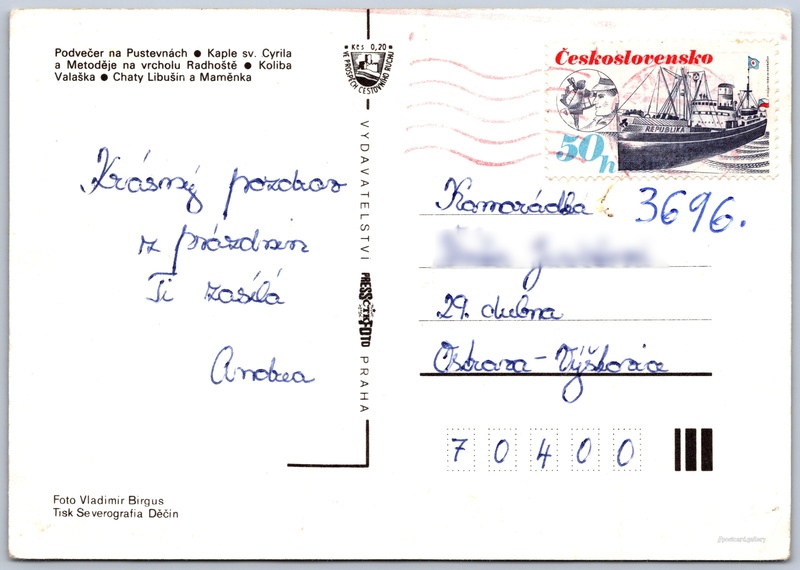 Podvečer na Pustevnách ● Kaple sv. Cyrila
a Metoděje na vrcholu Radhoště. ● Koliba
Valaška ● Chaty Libušín a Maměnka
Kčs 0,20
VE PROSPĚCH CESTOVNÍHO RUCHU
Československo
REPUBLIKA
50h
Krásný pozdrav
z prázdnin
Ti zasílá
Andrea
VYDAVATELSTVÍ PRESSFOTO PRAHA
ČTK
Kamarádka
3696.
29. dubna
Ostrava - Výškovice
70400
Foto Vladimír Birgus
Tisk Severografia Děčín